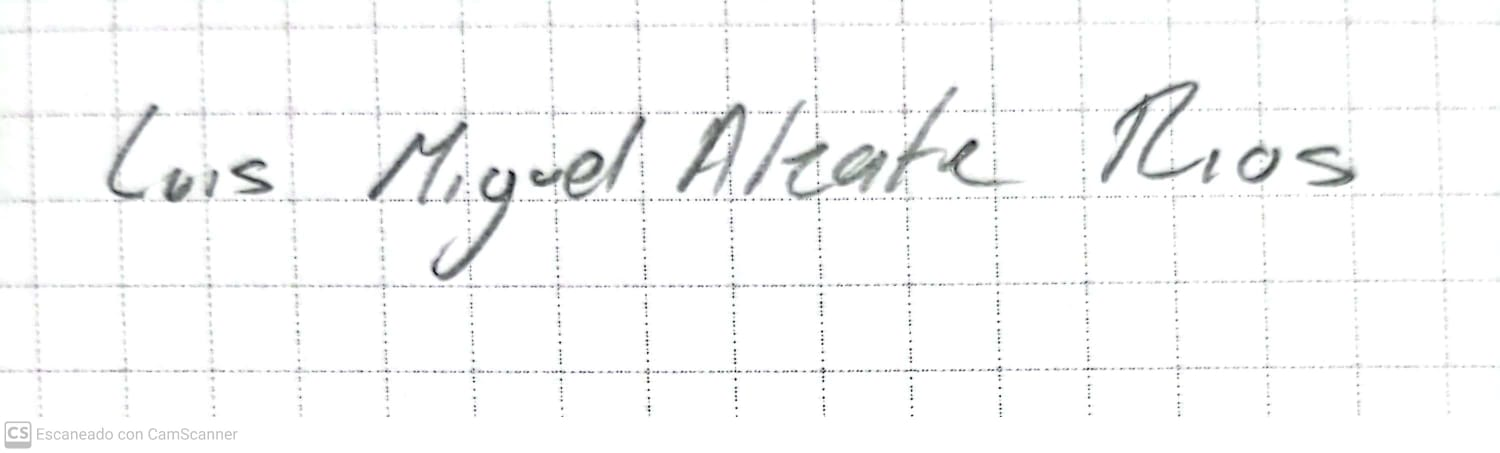 Luis Miguel Alzate Rios
CS Escaneado con CamScanner